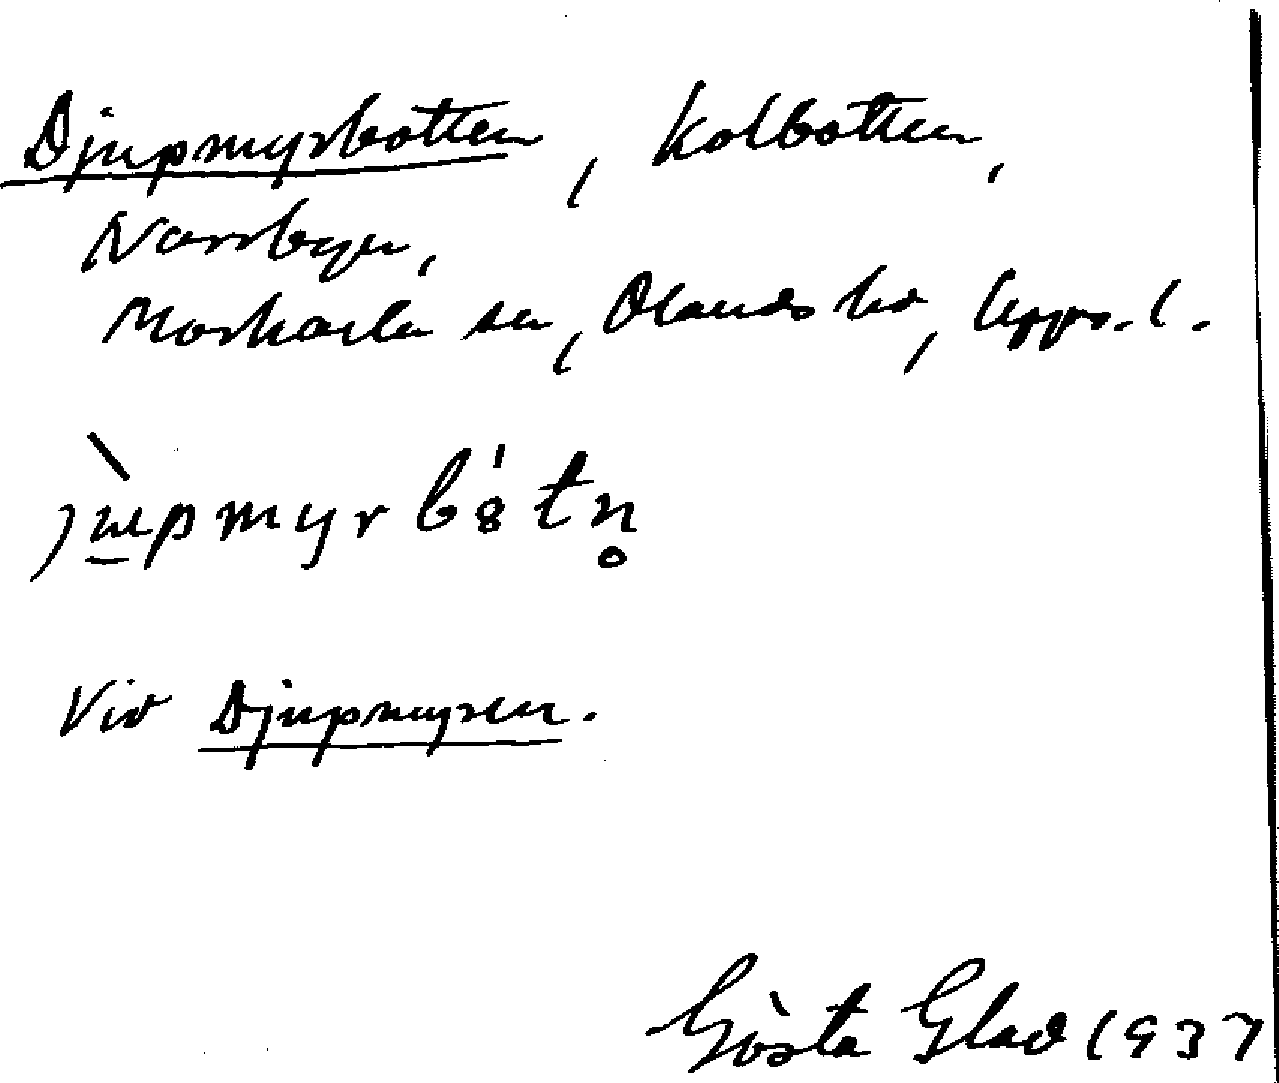 Djupmyrbotten, kolbotten,
Norrbyn,
Morkarla sn, Olands hd, Upps. l.
Vid Djupmyren.
Gösta Glad 1937